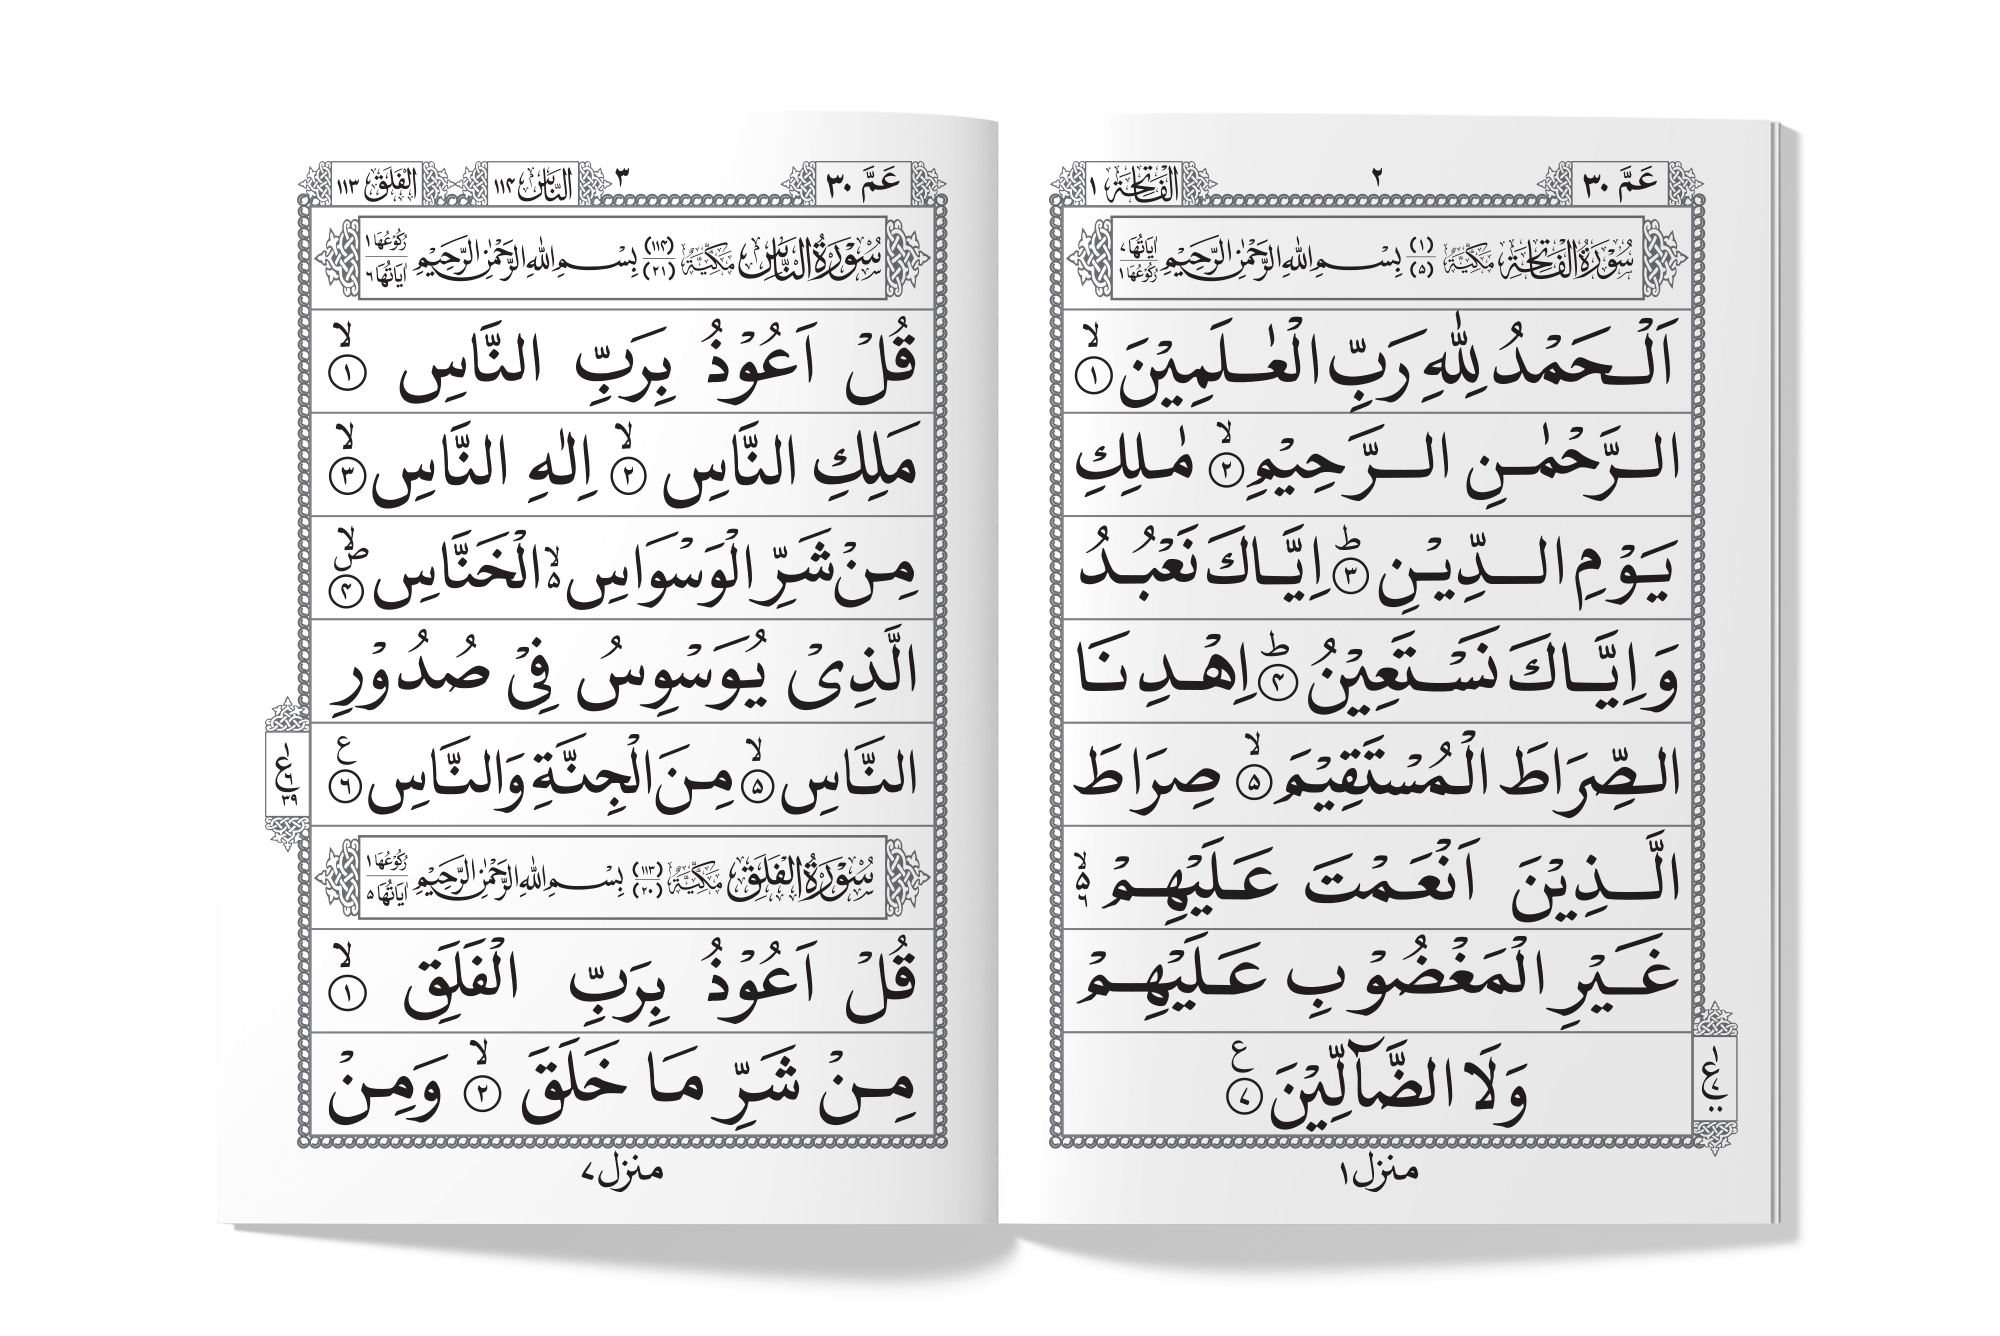 عَمَّ ٣٠
٢
الْفَاتِحَة ١
سُوْرَةُ الْفَاتِحَةِ مَكِّيَّةٌ (١) (٥) بِسْمِ اللهِ الرَّحْمٰنِ الرَّحِيْمِ اٰيَاتُهَا ٧ رُكُوْعُهَا ١
اَلْحَمْدُ لِلّٰهِ رَبِّ الْعٰلَمِيْنَ ۙ ١
الرَّحْمٰنِ الرَّحِيْمِ ۙ ٢ مٰلِكِ
يَوْمِ الدِّيْنِ ؕ ٣ اِيَّاكَ نَعْبُدُ
وَ اِيَّاكَ نَسْتَعِيْنُ ؕ ٤ اِهْدِنَا
الصِّرَاطَ الْمُسْتَقِيْمَ ۙ ٥ صِرَاطَ
الَّذِيْنَ اَنْعَمْتَ عَلَيْهِمْ ۙ ۵ ٦
غَيْرِ الْمَغْضُوْبِ عَلَيْهِمْ
وَلَا الضَّآلِّيْنَ ع ٧
١ ع ٧
منزل ١
عَمَّ ٣٠
٣
النَّاس ١١٤
الْفَلَق ١١٣
سُوْرَةُ النَّاسِ مَكِّيَّةٌ (١١٤) (٢١) بِسْمِ اللهِ الرَّحْمٰنِ الرَّحِيْمِ رُكُوْعُهَا ١ اٰيَاتُهَا ٦
قُلْ اَعُوْذُ بِرَبِّ النَّاسِ ۙ ١
مَلِكِ النَّاسِ ۙ ٢ اِلٰهِ النَّاسِ ۙ ٣
مِنْ شَرِّ الْوَسْوَاسِ ۙ۵ الْخَنَّاسِ ۙ ص ٤
الَّذِىْ يُوَسْوِسُ فِىْ صُدُوْرِ
النَّاسِ ۙ ٥ مِنَ الْجِنَّةِ وَالنَّاسِ ع ٦
١ ع ٦ ٣٩
سُوْرَةُ الْفَلَقِ مَكِّيَّةٌ (١١٣) (٢٠) بِسْمِ اللهِ الرَّحْمٰنِ الرَّحِيْمِ رُكُوْعُهَا ١ اٰيَاتُهَا ٥
قُلْ اَعُوْذُ بِرَبِّ الْفَلَقِ ۙ ١
مِنْ شَرِّ مَا خَلَقَ ۙ ٢ وَمِنْ
منزل ٧